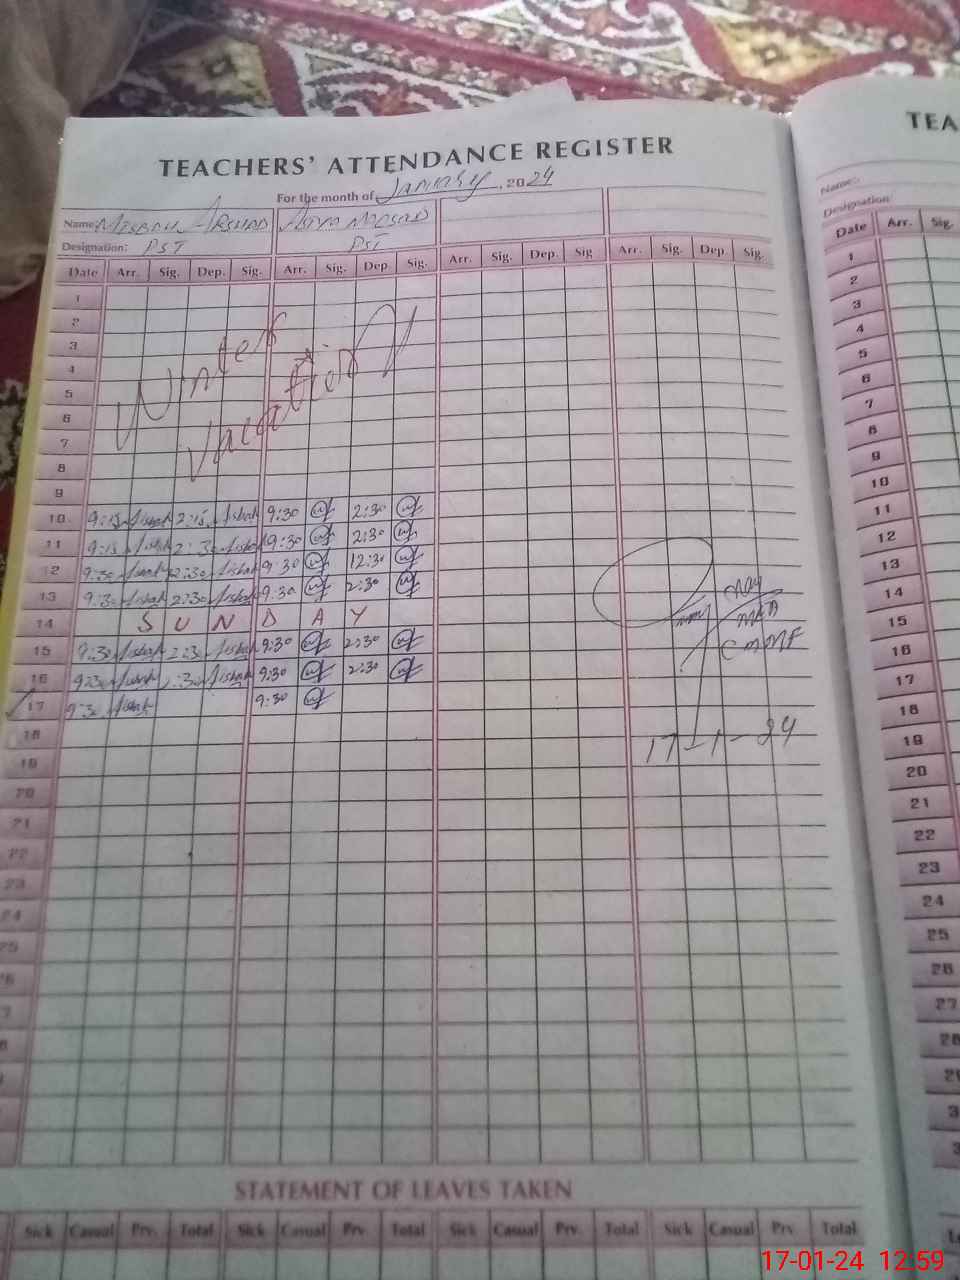 TEACHERS' ATTENDANCE REGISTER
For the month of January, 2024
Name: Misbah Arshad
Designation: PST PST
Date Arr. Sig. Dep. Sig. Arr. Sig. Dep. Sig. Arr. Sig. Dep. Sig Arr. Sig. Dep. Sig.
1
2
3
4
5
6
7
8
9
Winter
Vacation
10 9:15 Misbah 2:15 Misbah 9:30 2:30
11 9:15 Misbah 2:30 Misbah 9:30 2:30
12 9:30 Misbah 12:30 Misbah 9:30 12:30
13 9:30 Misbah 2:30 Misbah 9:30 2:30
14 S U N D A Y
15 9:30 Misbah 2:30 Misbah 9:30 2:30
16 9:30 Misbah 2:30 Misbah 9:30 2:30
17 9:30 Misbah 9:30
18
19
20
21
22
23
24
25
MEA
17-1-24
STATEMENT OF LEAVES TAKEN
Sick Casual Prv. Total Sick Casual Prv. Total Sick Casual Prv. Total Sick Casual Prv. Total
TEA
Name:
Designation
Date Arr. Sig.
1
2
3
4
5
6
7
8
9
10
11
12
13
14
15
16
17
18
19
20
21
22
23
24
25
26
27
28
17-01-24 12:59